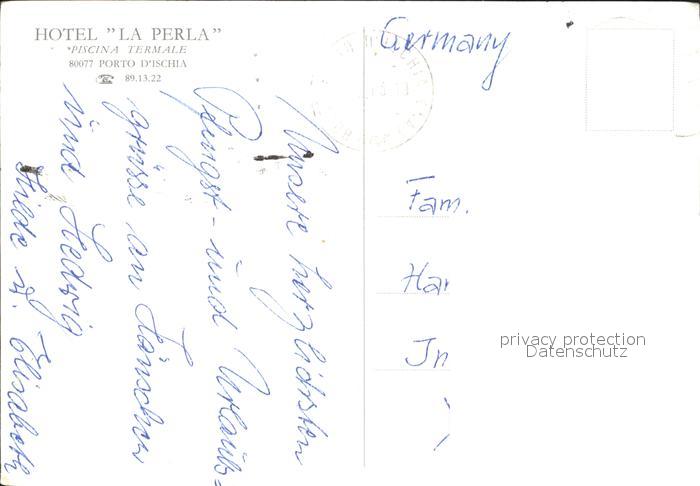 HOTEL "LA PERLA"
PISCINA TERMALE
80077 PORTO D'ISCHIA
☎ 89.13.22
Unsere herzlichsten
Pfingst- und Urlaubs=
grüsse an Hänschen
und Hedwig
Hilde u. Elisabeth
Germany
Fam.
Har
In
privacy protection
Datenschutz